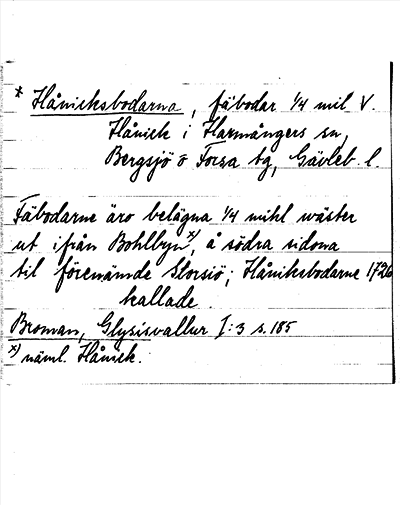 * Hånicksbodarna, fäbodar 1/4 mil V.
Hånick i Harmångers sn,
Bergsjö o Forsa tg, Gävleb. l.
Fäbodarne äro belägna 1/4 mihl wäster
ut ifrån Bohlbyn x), å södra sidona
til förenämde Storsiö; Håniksbodarne 1726
kallade.
Broman, Glysisvallur I:3 s. 185
x) näml. Hånick.